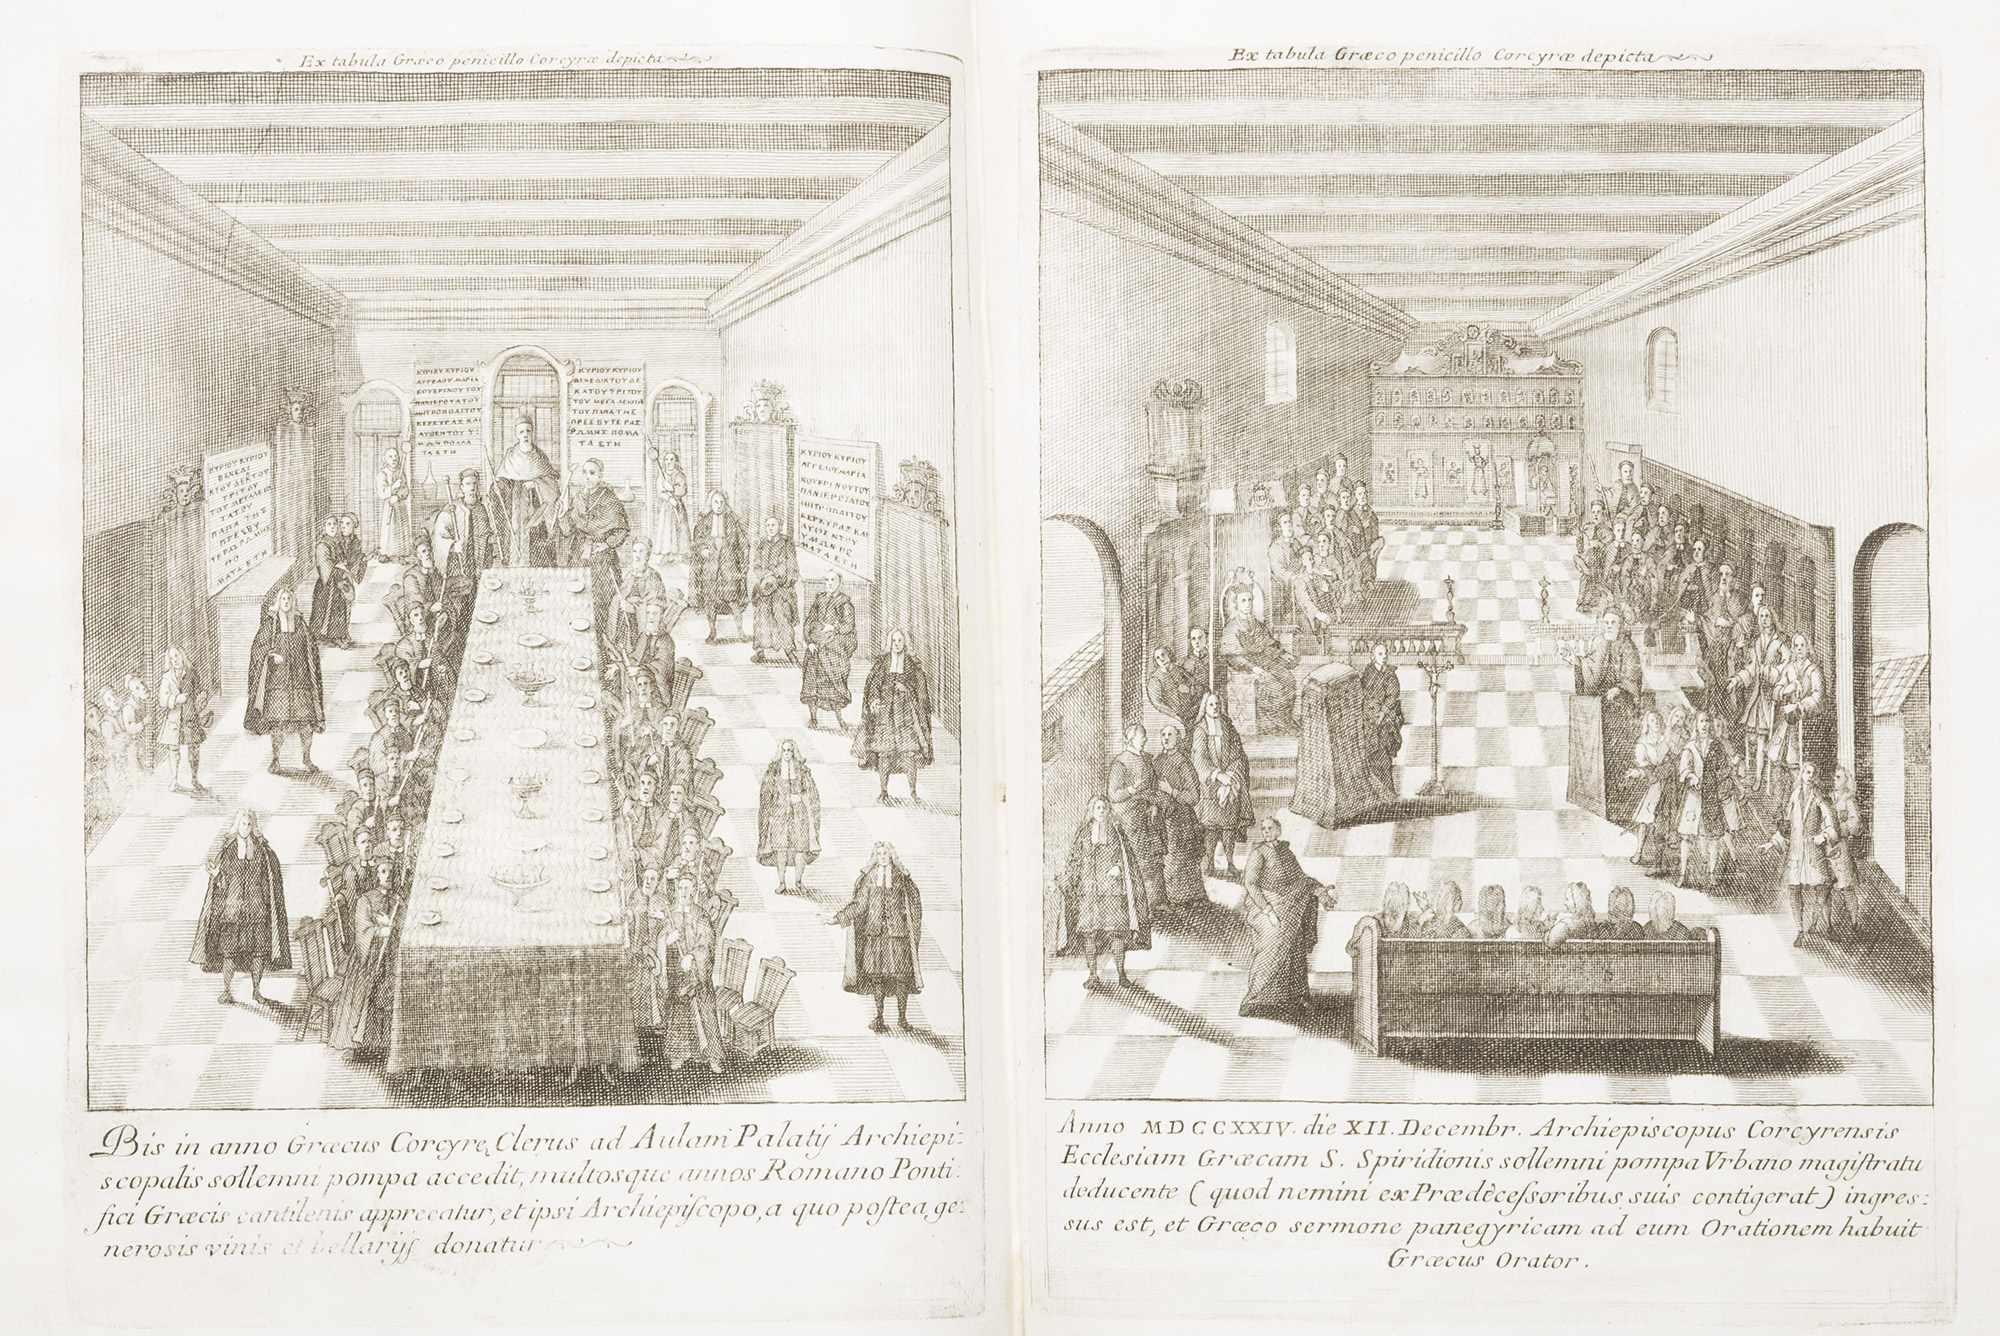 Ex tabula Græco penicillo Corcyræ depicta
ΚΥΡΙΟΥ ΚΥΡΙΟΥ
ΑΓΓΕΛΟΥ ΜΑΡΙΑ
ΚΟΥΕΡΙΝΟΥ ΤΟΥ
ΠΑΝΙΕΡΟΥΑΤΟΥ
ΜΗΤΡΟΠΟΛΙΤΟΥ
ΚΕΡΚΥΡΑΣ ΚΑΙ
ΑΥΘΕΝΤΟΥ Υ
ΜΩΝ ΠΟΛΛΑ
ΤΑ ΕΤΗ
ΚΥΡΙΟΥ ΚΥΡΙΟΥ
ΒΕΝΕΔΙΚΤΟΥ ΔΕ
ΚΑΤΟΥ ΤΡΙΤΟΥ
ΤΟΥ ΜΕΓΑΛΕΙΟΤΑ
ΤΟΥ ΠΑΠΑ ΤΗΣ
ΠΡΕΣΒΥΤΕΡΑΣ
ΡΩΜΗΣ ΠΟΛΛΑ
ΤΑ ΕΤΗ
ΚΥΡΙΟΥ ΚΥΡΙΟΥ
ΒΕΝΕΔΙ
ΚΤΟΥ ΔΕΚΑΤΟΥ
ΤΡΙΤΟΥ
ΤΟΥ ΜΕΓΑΛΕΙΟ
ΤΑΤΟΥ
ΠΑΠΑ ΤΗΣ
ΠΡΕΣΒΥ
ΜΑ ΤΑ ΕΤΗ
ΚΥΡΙΟΥ ΚΥΡΙΟΥ
ΑΓΓΕΛΟΥ ΜΑΡΙΑ
ΚΟΥΕΡΙΝΟΥ ΤΟΥ
ΠΑΝΙΕΡΟΤΑΤΟΥ
ΜΗΤΡΟΠΟΛΙΤΟΥ
ΚΕΡΚΥΡΑΣ ΚΑΙ
ΑΥΘΕΝΤΟΥ
ΥΜΩΝ ΠΟ
ΜΑ ΤΑ ΕΤΗ
Bis in anno Græcus Corcyrę Clerus ad Aulam Palatij Archiepi-
scopalis sollemni pompa accedit, multosque annos Romano Ponti-
fici Græcis cantilenis apprecatur, et ipsi Archiepiscopo, a quo postea ge-
nerosis vinis et bellarijs donatur
Ex tabula Græco penicillo Corcyræ depicta
Anno MDCCXXIV. die XII. Decembr. Archiepiscopus Corcyrensis
Ecclesiam Græcam S. Spiridionis sollemni pompa Vrbano magistratu
deducente (quod nemini ex Prædecessoribus suis contigerat) ingres-
sus est, et Græco sermone panegyricam ad eum Orationem habuit
Græcus Orator.